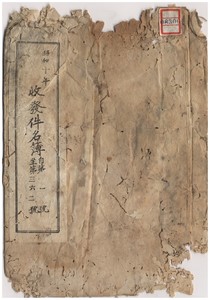 昭和
年
收發件名簿
自第一號
至第三六二號